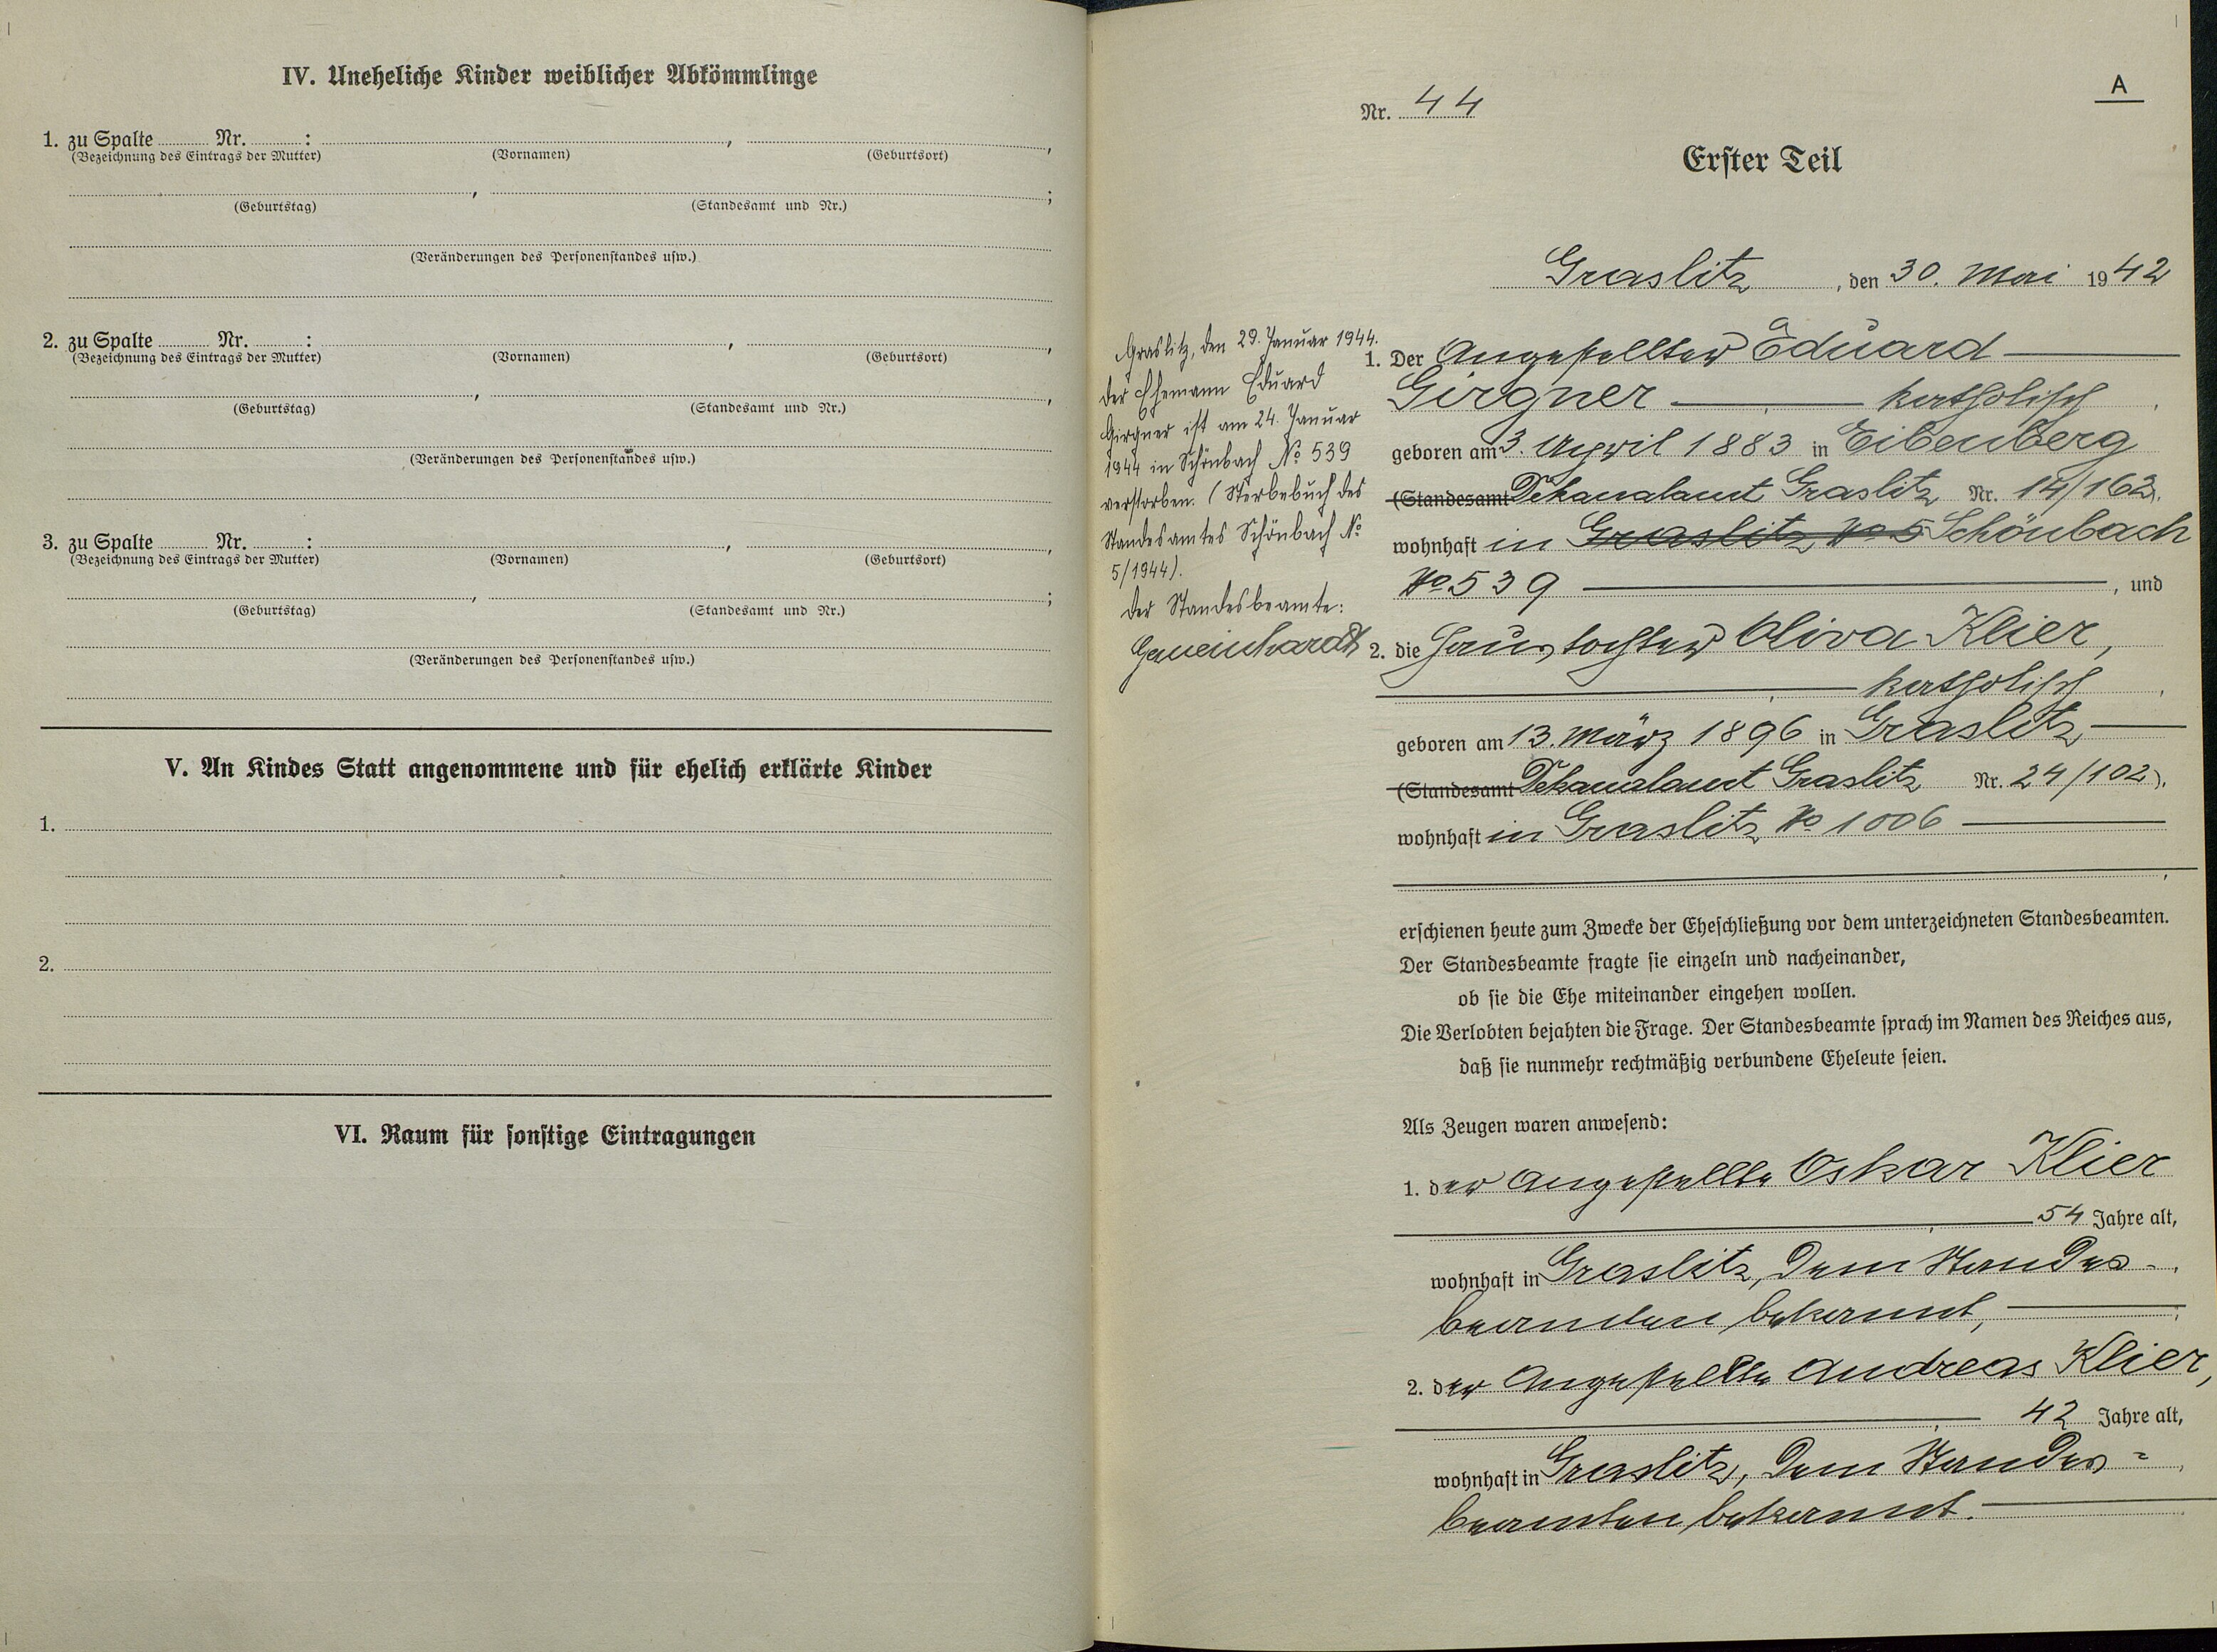 IV. Uneheliche Kinder weiblicher Abkömmlinge
1. zu Spalte ........ Nr. ........ : ........ , ........ ,
(Bezeichnung des Eintrags der Mutter) (Vornamen) (Geburtsort)
........ , ........ ;
(Geburtstag) (Standesamt und Nr.)
(Veränderungen des Personenstandes usw.)
2. zu Spalte ........ Nr. ........ : ........ , ........ ,
(Bezeichnung des Eintrags der Mutter) (Vornamen) (Geburtsort)
........ , ........ ,
(Geburtstag) (Standesamt und Nr.)
(Veränderungen des Personenstandes usw.)
3. zu Spalte ........ Nr. ........ : ........ , ........ ,
(Bezeichnung des Eintrags der Mutter) (Vornamen) (Geburtsort)
........ , ........ ;
(Geburtstag) (Standesamt und Nr.)
(Veränderungen des Personenstandes usw.)
V. An Kindes Statt angenommene und für ehelich erklärte Kinder
1.
2.
VI. Raum für sonstige Eintragungen
A
Nr. 44
Erster Teil
Graslitz, den 30. Mai 1942
Graslitz, den 29. Januar 1944.
Der Ehemann Eduard
Girgner ist am 24. Januar
1944 in Schönbach No 539
verstorben. (Sterbebuch des
Standesamtes Schönbach No
5/1944).
Der Standesbeamte:
Gemeinhardt
1. Der Angestellter Eduard
Girgner, katholisch,
geboren am 3. April 1883 in Eibenberg
(Standesamt Dekanalamt Graslitz Nr. 14/162).
wohnhaft in Graslitz, No 5 Schönbach
No 539, und
2. die Haustochter Oliva Klier,
, katholisch,
geboren am 13. März 1896 in Graslitz
(Standesamt Dekanalamt Graslitz Nr. 24/102).
wohnhaft in Graslitz No 1006
,
erschienen heute zum Zwecke der Eheschließung vor dem unterzeichneten Standesbeamten.
Der Standesbeamte fragte sie einzeln und nacheinander,
ob sie die Ehe miteinander eingehen wollen.
Die Verlobten bejahten die Frage. Der Standesbeamte sprach im Namen des Reiches aus,
daß sie nunmehr rechtmäßig verbundene Eheleute seien.
Als Zeugen waren anwesend:
1. der Angestellte Oskar Klier
, 54 Jahre alt,
wohnhaft in Graslitz, dem Standes-
beamten bekannt,
2. der Angestellte Andreas Klier,
, 42 Jahre alt,
wohnhaft in Graslitz, dem Standes=
beamten bekannt.